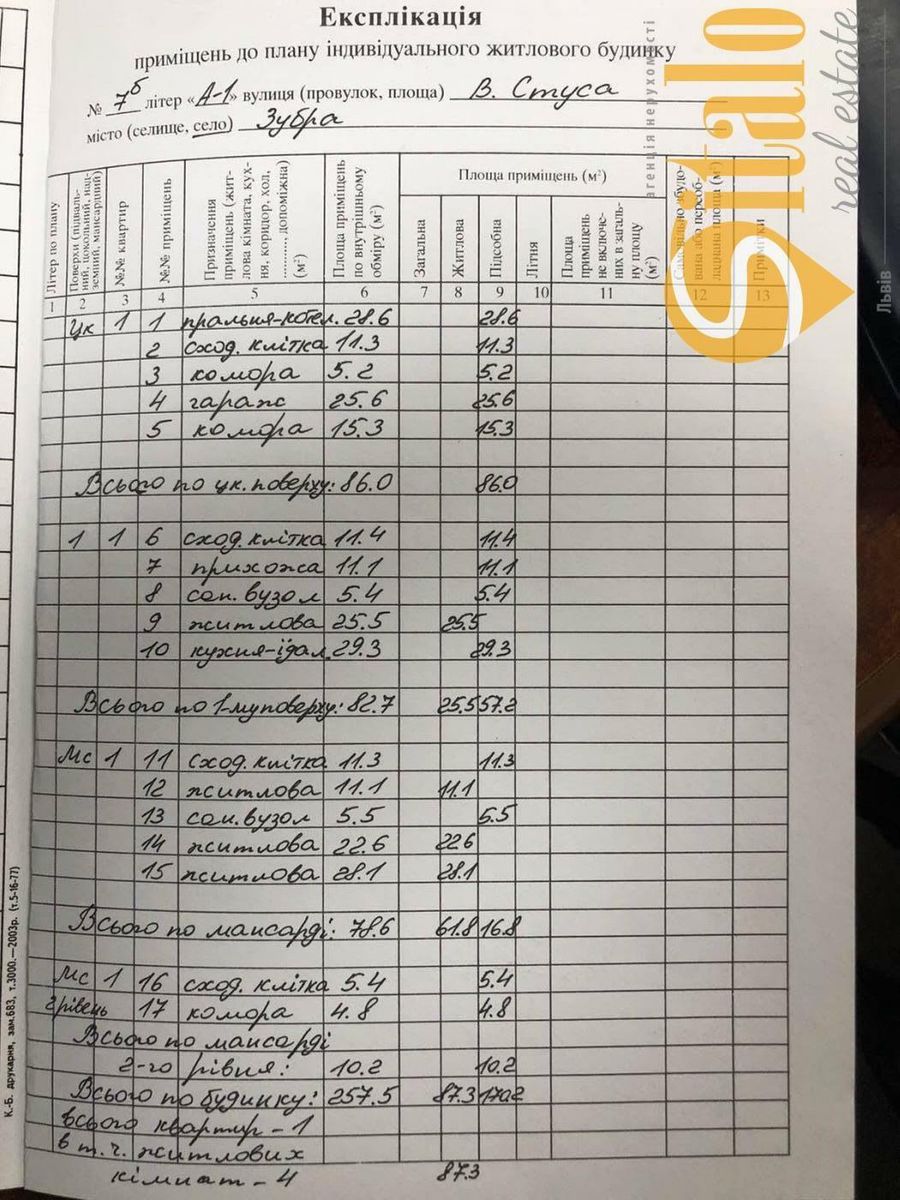 Експлікація
приміщень до плану індивідуального житлового будинку
№ 7б літер «А-1» вулиця (провулок, площа) В. Стуса
місто (селище, село) Зубра
Літер по плану
Поверхи (підвальний, цокольний, надземний, мансардний)
№№ квартир
№№ приміщень
Призначення приміщень (житлова кімната, кухня, коридор, хол, ............, допоміжна) (м²)
Площа приміщень по внутрішньому обміру (м²)
Площа приміщень (м²)
Загальна
Житлова
Підсобна
Літня
Площа приміщень не включених в загальну площу (м²)
Самовільно збудована або переобладнана площа (м²)
Примітки
1 2 3 4 5 6 7 8 9 10 11 12 13
Цк 1 1 пральня-котел. 28.6 28.6
2 сход. клітка 11.3 11.3
3 комора 5.2 5.2
4 гараж 25.6 25.6
5 комора 15.3 15.3
Всього по цк. поверху: 86.0 86.0
1 1 6 сход. клітка 11.4 11.4
7 прихожа 11.1 11.1
8 сан. вузол 5.4 5.4
9 житлова 25.5 25.5
10 кухня-їдал. 29.3 29.3
Всього по 1-му поверху: 82.7 25.5 57.2
Мс 1 11 сход. клітка 11.3 11.3
12 житлова 11.1 11.1
13 сан. вузол 5.5 5.5
14 житлова 22.6 22.6
15 житлова 28.1 28.1
Всього по мансарді: 78.6 61.8 16.8
Мс 1 16 сход. клітка 5.4 5.4
2 рівень 17 комора 4.8 4.8
Всього по мансарді
2-го рівня: 10.2 10.2
Всього по будинку: 257.5 87.3 170.2
всього квартир - 1
в т.ч. житлових
кімнат - 4 87.3
К.-Б. друкарня, зам.683, т.3000.—2003р. (т.5-16-77)
агенція нерухомості
Sitalo
real estate
Львів